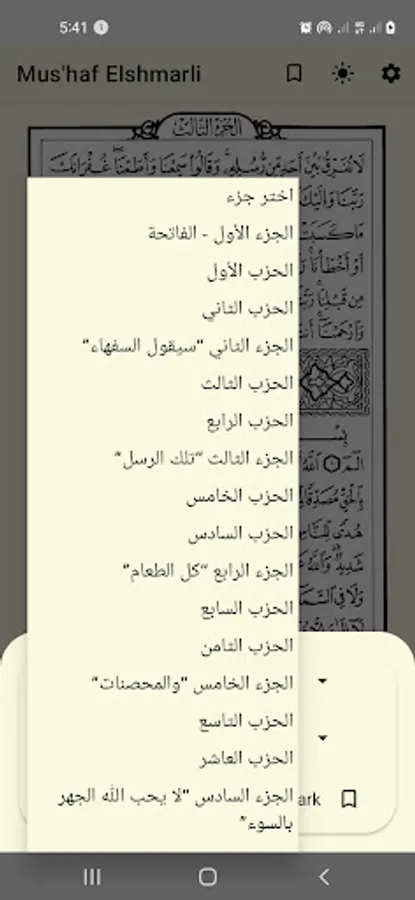 5:41
Mus'haf Elshmarli
الجزء الثالث
لَا نُفَرِّقُ بَيْنَ أَحَدٍ مِّن رُّسُلِهِ وَقَالُوا سَمِعْنَا وَأَطَعْنَا غُفْرَانَكَ
رَبَّنَا وَإِلَيْكَ
اختر جزء
الجزء الأول - الفاتحة
الحزب الأول
الحزب الثاني
الجزء الثاني "سيقول السفهاء"
الحزب الثالث
الحزب الرابع
الجزء الثالث "تلك الرسل"
الحزب الخامس
الحزب السادس
الجزء الرابع "كل الطعام"
الحزب السابع
الحزب الثامن
الجزء الخامس "والمحصنات"
الحزب التاسع
الحزب العاشر
الجزء السادس "لا يحب الله الجهر
بالسوء"
ark